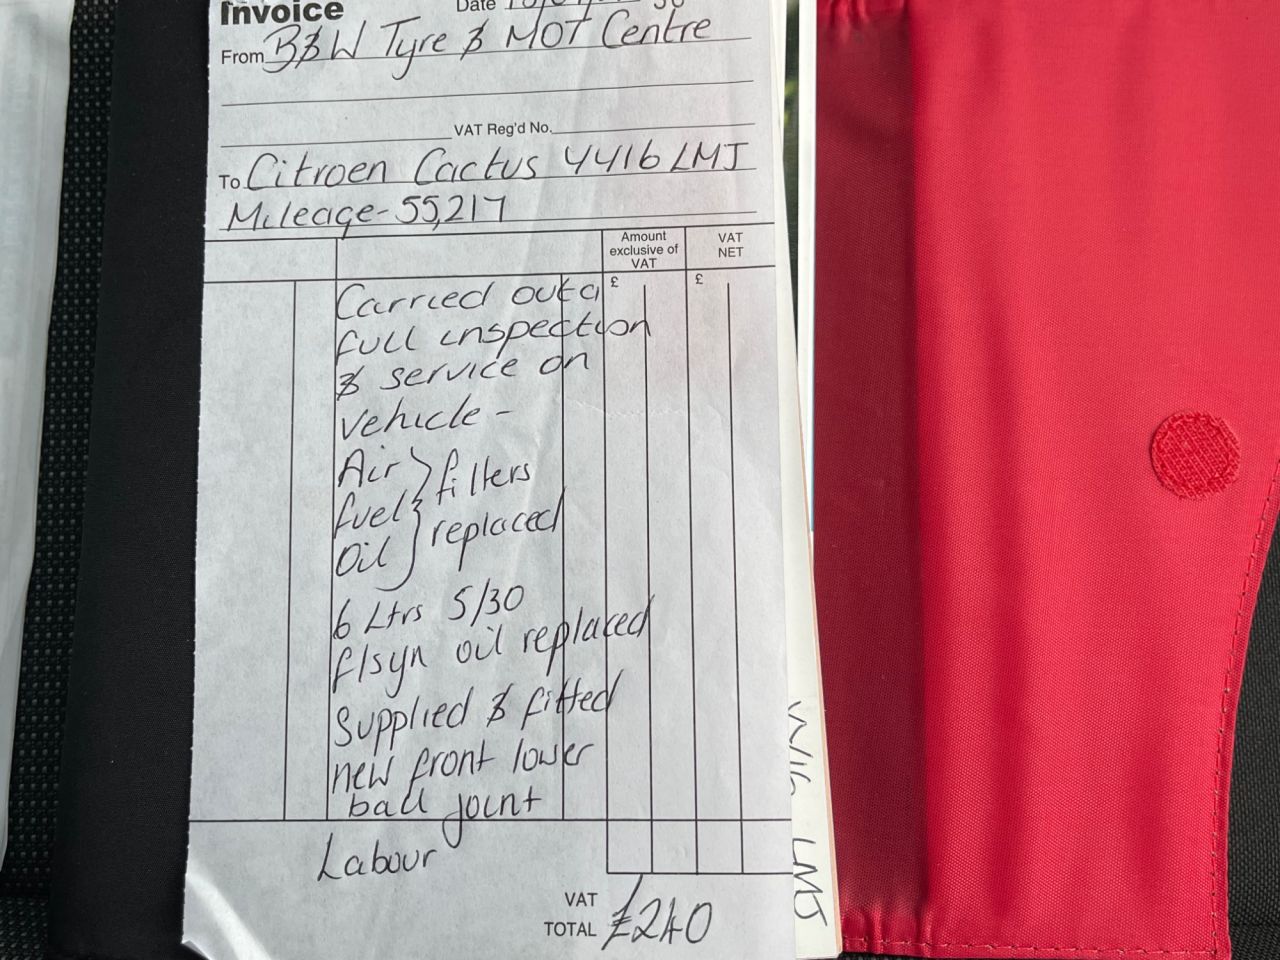 Invoice
Date
From B&W Tyre & MOT Centre
VAT Reg'd No.
To Citroen Cactus YY16 LMJ
Mileage-55,217
Amount exclusive of VAT
VAT NET
£ £
Carried out a
full inspection
& service on
vehicle -
Air
fuel } filters
Oil } replaced
6 Ltrs 5/30
f/syn oil replaced
Supplied & fitted
new front lower
ball joint
Labour
VAT
TOTAL £240
LMJ